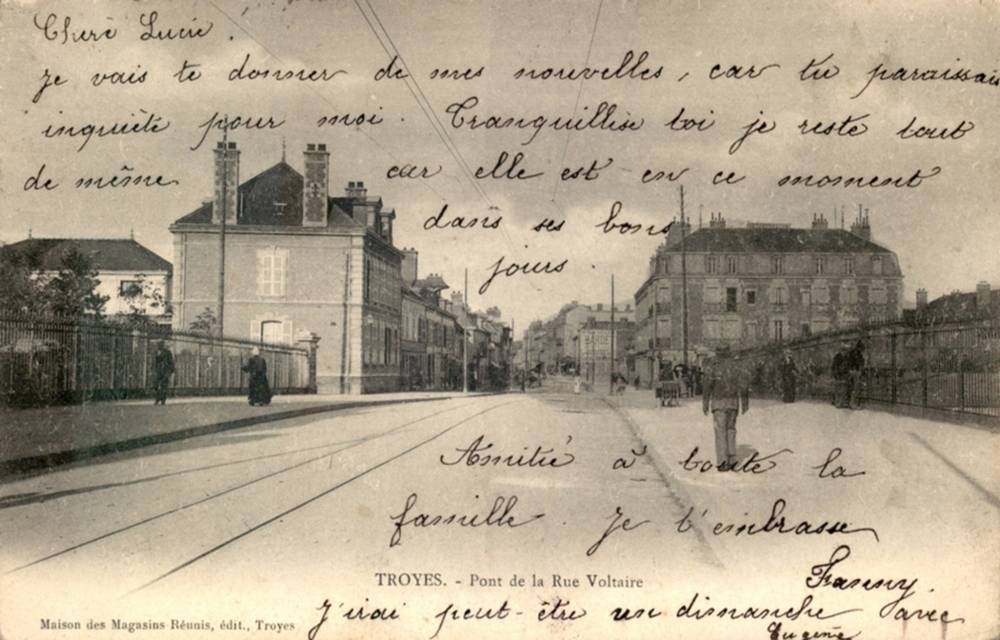 Cherè Lucie.
Je vais te donner de mes nouvelles, car tu paraissais
inquiète pour moi. Tranquillise toi je reste tout
de même car elle est en ce moment
dans ses bons
jours.
Amitié à toute la
famille. Je t'embrasse
TROYES. - Pont de la Rue Voltaire
Fanny.
J'irai peut-être un dimanche avec
Eugène
Maison des Magasins Réunis, édit., Troyes